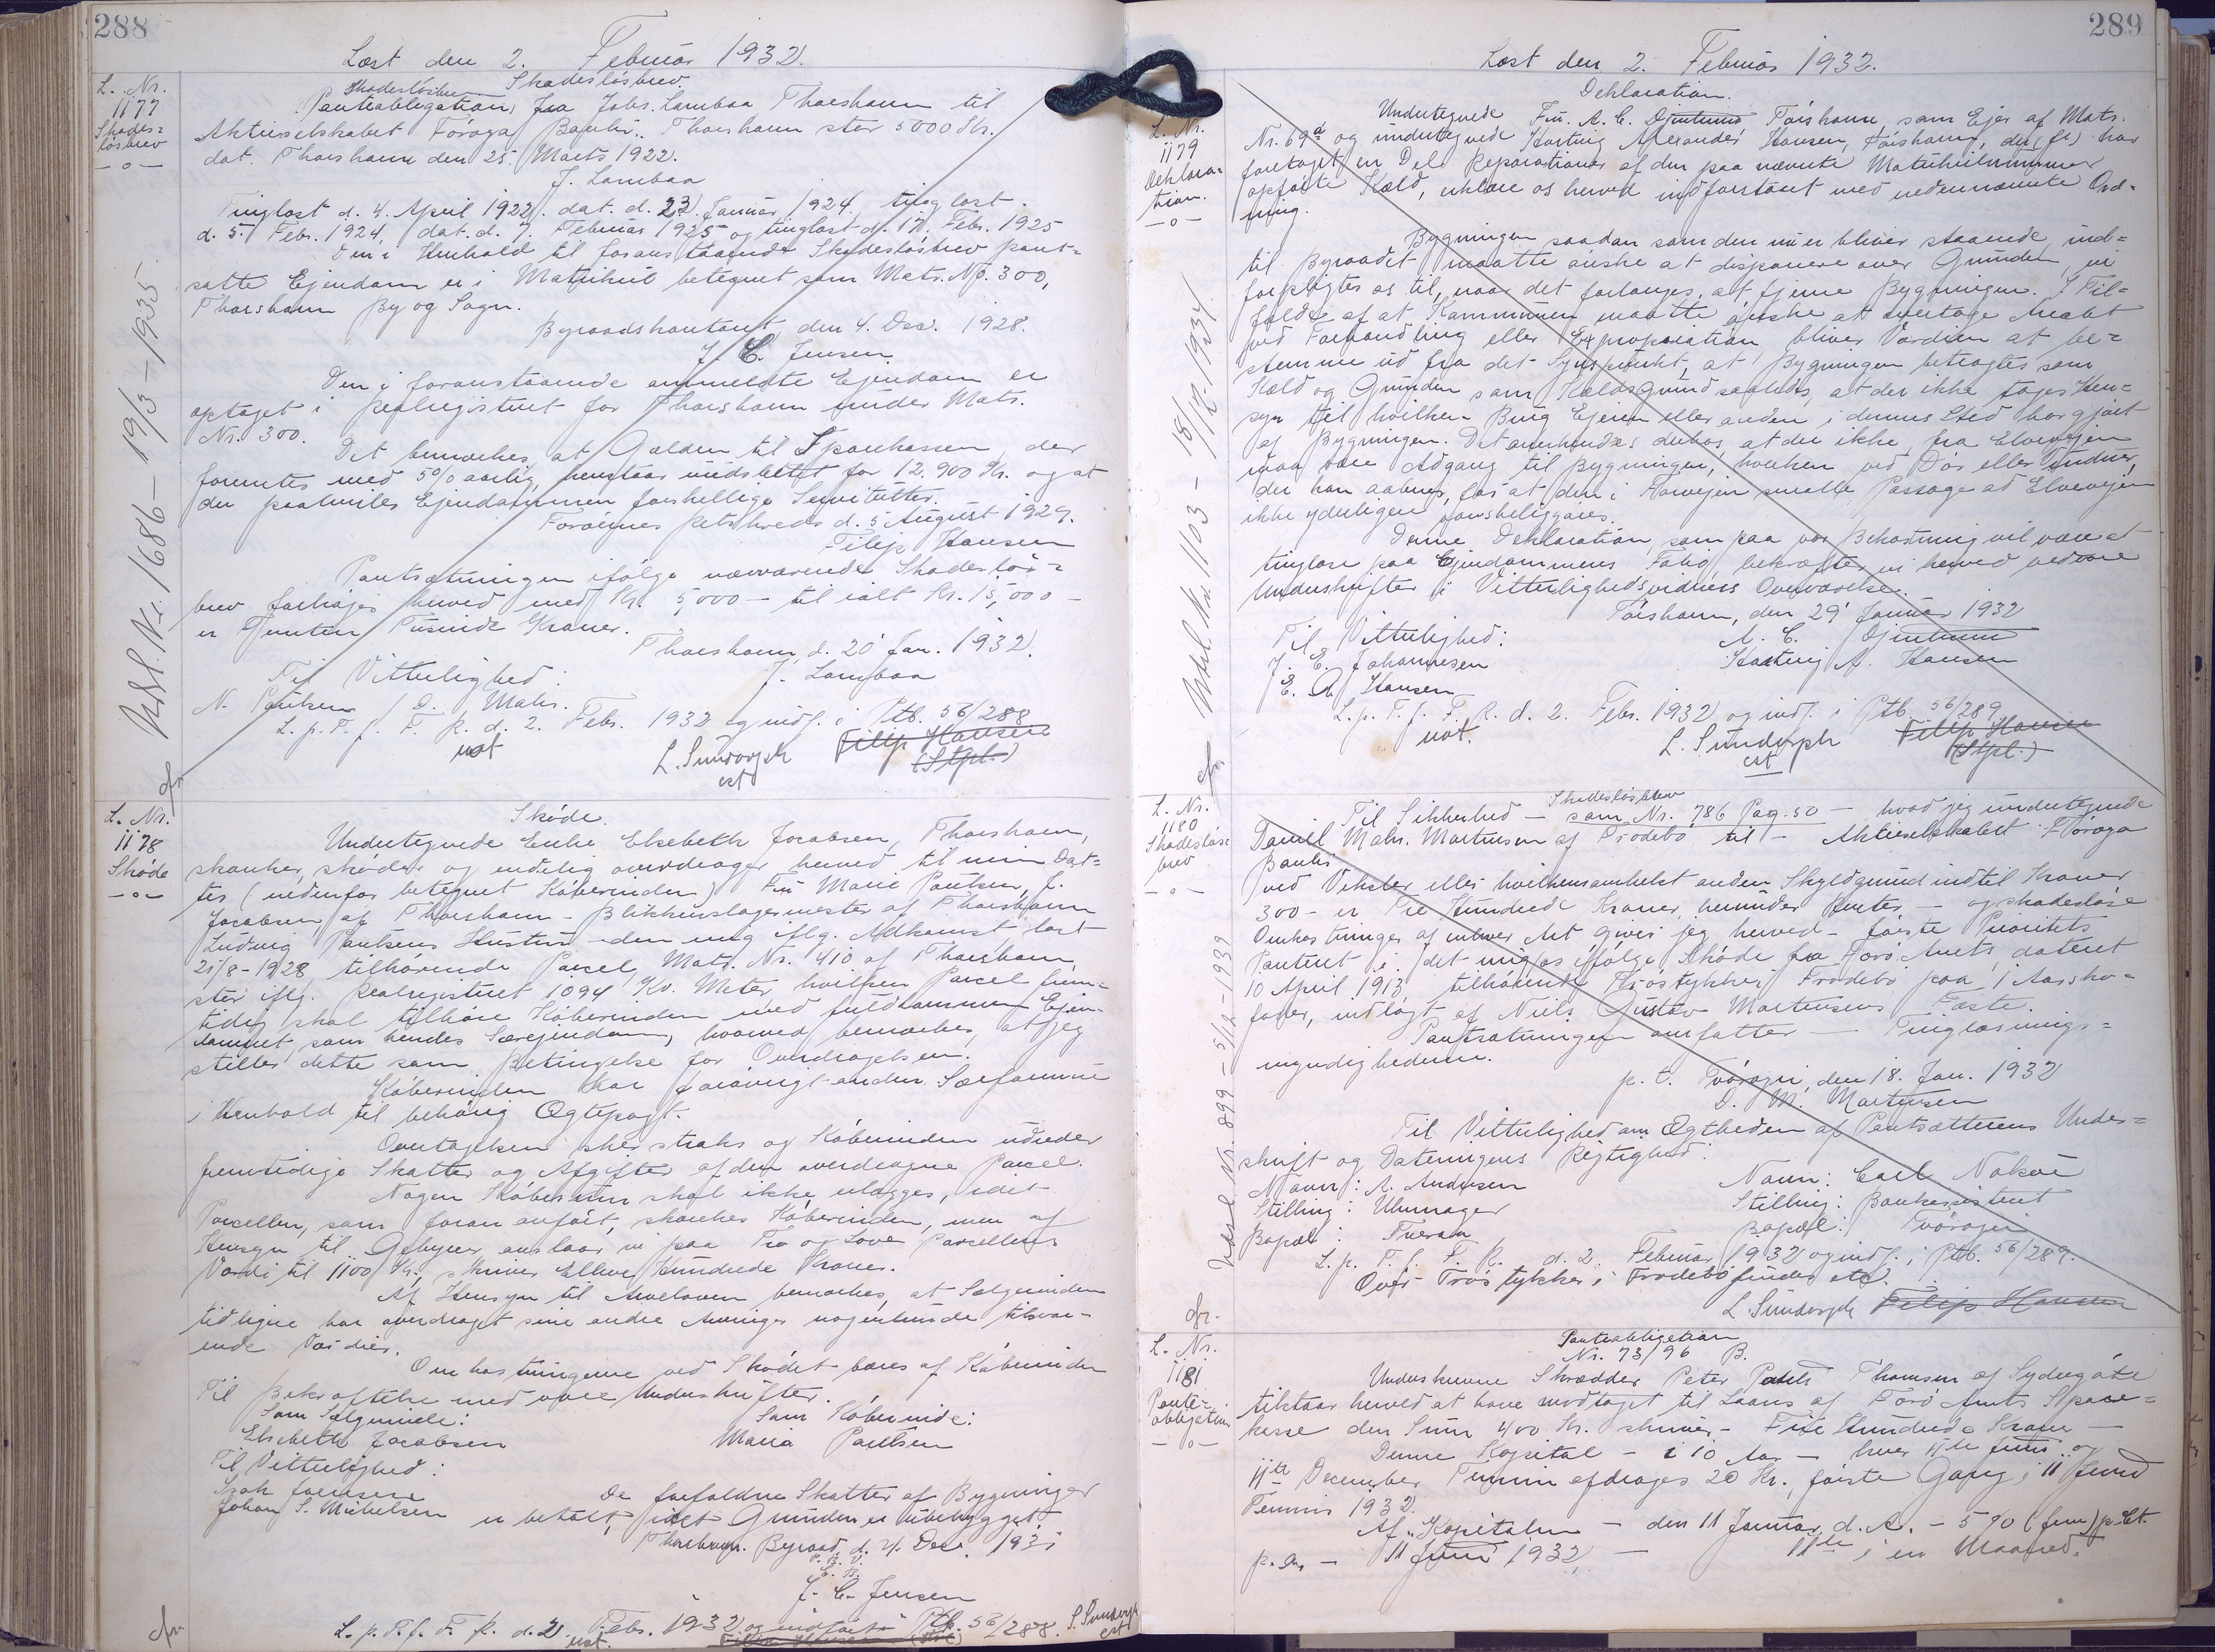 288
Læst den 2. Februar 1932.
L. Nr.
1177
Skades=
løsbrev
—o—
Skadesløsbrev.
Panteobligation, fra Johs. Lamhaa Thorshavn til
Aktieselskabet Föroya Banki, Thorshavn stor 5000 Kr.
dat. Thorshavn den 25. Marts 1922.
J. Lamhaa
Tinglæst d. 4. April 1922. dat. d. 23. Januar 1924, tinglæst
d. 5. Febr. 1924, dat. d. 7. Februar 1925 og tinglæst d. 17. Febr. 1925
Den i Henhold til foranstaaende Skadesløsbrev pant=
satte Ejendom er i Matrikul betegnet som Matr. No. 300,
Thorshavn By og Sogn.
Byraadskontoret, den 4. Dec. 1928.
J. C. Jensen
Den i foranstaaende anmeldte Ejendom er
optaget i Realregistret for Thorshavn under Matr.
Nr. 300.
Det bemærkes, at Gælden til Sparekassen, der
forrentes med 5% aarlig, henstaar uudslettet for 12,900 Kr. og at
der paahviler Ejendommen forskellige Servitutter.
Færøernes Retskreds d. 5 August 1929.
Filip Hansen
Pantsætningen ifølge nærværende Skadesløs=
brev forhøjes herved med Kr. 5,000 — til ialt Kr. 15,000 —
er Femten Tusinde Kroner.
Thorshavn, d. 20 Jan. 1932.
Til Vitterlighed:
J. Lamhaa
N. Poulsen / D. Mohr.
L. p. T. f. F. R. d. 2. Febr. 1932 og indf. i Ptb. 56/288
not L. Sundorph Filip Hansen
cst (Stpl.)
Udsl. Nr. 1686 — 19/3 — 1935.
cfr.
L. Nr.
1178
Skøde
—o—
Skøde.
Undertegnede Enke Elsebeth Jacobsen, Thorshavn,
skænker, skøder og endelig overdrager herved til min Dat=
ter (nedenfor betegnet Køberinden) Fru Marie Poulsen, f.
Jacobsen, af Thorshavn — Blikkenslagermester af Thorshavn
Ludvig Poulsens Hustru — den mig iflg. Adkomst læst
21/8-1928, tilhørende Parcel, Matr. Nr. 410 af Thorshavn,
stor iflg. Realregistret 1094 Kv. Meter, hvilken Parcel frem=
tidig skal tilhøre Køberinden med fuldkommen Ejen=
domsret som hendes Særejendom, hvorved bemærkes, at jeg
stiller dette som Betingelse for Overdragelsen.
Køberinden har forøvrigt anden Særformue
i Henhold til behørig Ægtepagt.
Overtagelsen sker straks og Køberinden udreder
fremtidige Skatter og Afgifter af den overdragne Parcel.
Nogen Købesum skal ikke erlægges, idet
Parcellen, som foran anført, skænkes Køberinden, men af
Hensyn til Gebyrer anslaar vi paa Tro og Love Parcellens
Værdi til 1100 Kr., skriver Elleve Hundrede Kroner.
Af Hensyn til Arveloven bemærkes, at Sælgerinden
tidligere har overdraget sine andre Arvinger nogenlunde tilsva=
rende Værdier.
Omkostningerne ved Skødet bæres af Køberinden
Til Bekræftelse med vore Underskrifter.
Som Sælgerinde: Som Køberinde:
Elsebeth Jacobsen Maria Poulsen
Til Vitterlighed:
Isak Jacobsen
Johan S. Michelsen
De forfaldne Skatter af Bygninger
er betalt, idet Grunden er ubebygget
Thorshavn Byraad, d. 4. Dec. 1931
P. B. V.
E. B.
J. C. Jensen
L. p. T. f. F. R. d. 2. Febr. 1932 og indført i Ptb. 56/288. L. Sundorph
not. Filip Hansen cst
cfr
289
Læst den 2. Februar 1932.
L. Nr.
1179
Deklara=
tion.
—o—
Deklaration.
Undertegnede Fru. A. C. Djurhuus Tórshavn, som Ejer af Matr.
Nr. 69a og undertegnede Hartvig Alexander Hansen, Tórshavn, der (fr) har
foretaget en Del Reparationer af den paa nævnte Matrikulnummer
opførte Kæld, erklære os herved indforstaaet med nedennævnte Ord=
ning.
Bygningen saadan som den nu er bliver staaende, ind=
til Byraadet maatte ønske at disponere over Grunden, vi
forpligter os til, naar det forlanges, at fjerne Bygningen. I Til=
fælde af at Kommunen maatte ønske at overtage Arealet
ved Forhandling eller Expropriation, bliver Værdien at be=
stemme ud fra det Synspunkt, at Bygningen betragtes som
Kæld og Grunden som Kældsgrund saaledes, at der ikke tages Hen=
syn til hvilken Brug Ejeren eller anden i dennes Sted har gjort
af Bygningen. Det anerkendes derhos, at der ikke fra Elvevejen
maa være Adgang til Bygningen, hverken ved Dør eller Vinduer,
der kan aabnes, for at den i Forvejen smalle Passage ad Elvevejen
ikke yderligere vanskeliggøres.
Denne Deklaration, som paa vor Bekostning vil være at
tinglæse paa Ejendommens Folio, bekræfter vi herved ved vore
Underskrifter i Vitterlighedsvidners Overværelse.
Tórshavn, den 29' Januar 1932
Til Vitterlighed: A. C. Djurhuus
J. E. Johannesen Hartvig A. Hansen
E. A. Hansen
L. p. T. f. F. R. d. 2. Febr. 1932 og indf. i Ptb. 56/289
not. L. Sundorph Filip Hansen
cst (Stpl.)
Udsl. Nr. 1103 — 18/12-1934
cfr
L. Nr.
1180
Skadesløs=
brev
—o—
Skadesløsbrev
Til Sikkerhed — som Nr. 786 Pag. 50 — hvad jeg undertegnede
Daniel Mohr. Mortensen af Frodebö til — Aktieselskabet Föroya
Banki
ved Veksler eller hvilkensomhelst anden Skyldgrund indtil Kroner
300 — er Tre Hundrede Kroner, herunder Renter — og skadesløse
Omkostninger af enhver Art giver jeg herved — første Prioritets
Panteret i det mig os ifølge Skøde fra Færø Amt, dateret
10 April 1913 tilhørende Trøstykke i Frodebö paa 1 Aars ko=
foder, indlagt af Niels Gustav Mortensens Fæste.
Pantsætningen omfatter — Tinglæsnings=
myndighederne.
p. t. Tvöroyri, den 18. Jan. 1932
D. M. Mortensen
Til Vitterlighed om Ægtheden af Pantsætterens Under=
skrift og Dateringens Rigtighed:
Navn: A. Andersen Navn: Carl Nolsøe
Stilling: Uhrmager Stilling: Bankassistent
Bopæl: Tveraa Bopæl: Tvöroyri
L. p. T. f. F. R. d. 2. Februar 1932 og indf. i Ptb. 56/289.
Over Trøstykker i Frodebö findes etc.
L. Sundorph Filip Hansen
Udsl. Nr. 899 — 5/12-1939
cfr.
L. Nr.
1181
Pante=
obligation
—o—
Panteobligation
Nr. 73/96 B.
Underskrevne Skrædder Peter Pauli Thomsen af Sydregöte
tilstaar herved at have modtaget til Laans af Færö Amts Spare=
kasse den Sum 400 Kr. skriver — Fire Hundrede Kroner —
Denne Kapital — i 10 Aar — hver 11te Juni og
11te December Termin afdrages 20 Kr., første Gang i 11 Juni
Termin 1932.
Af Kapitalen — den 11 Januar d. A. — 5 % (fem) p.Ct.
p. a. — 11 Juni 1932, — 11te i en Maaned.